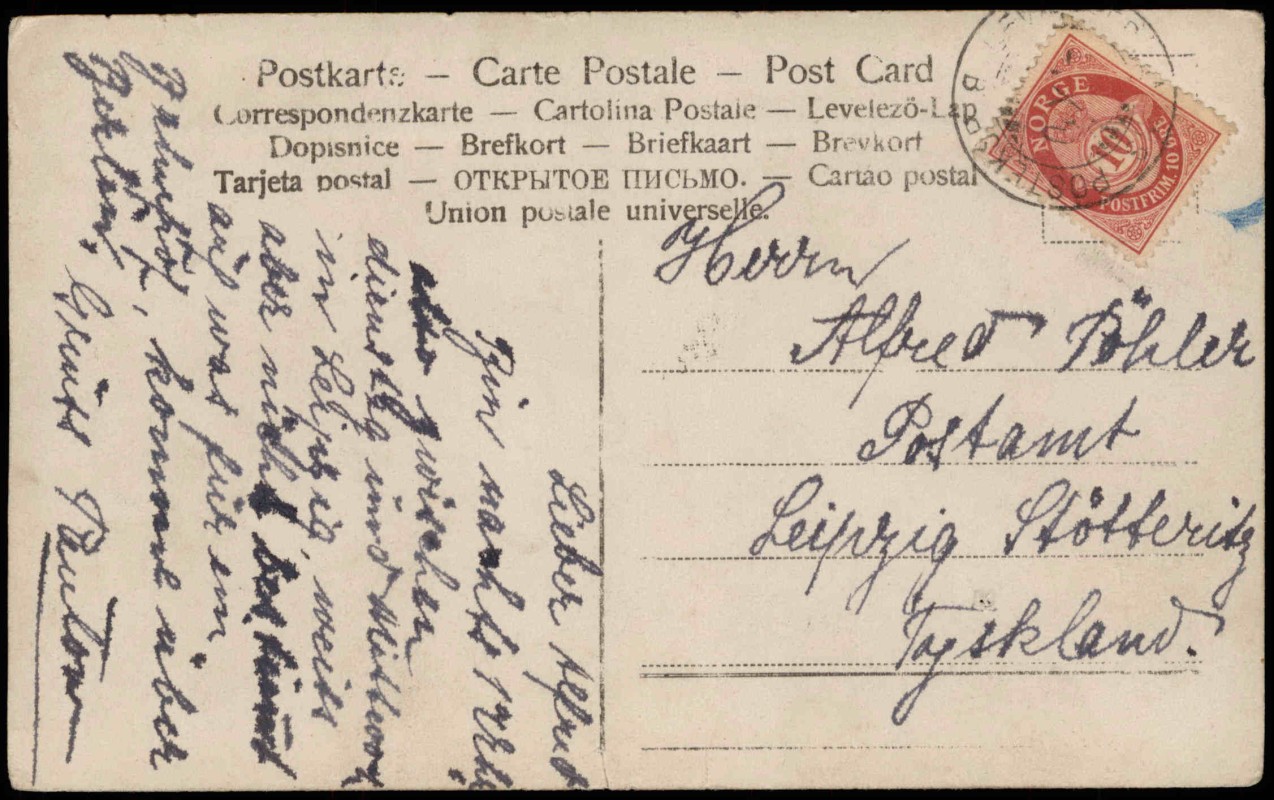 Postkarte – Carte Postale – Post Card
Correspondenzkarte — Cartolina Postale — Levelező-Lap
Dopisnice — Brefkort — Briefkaart — Brevkort
Tarjeta postal — ОТКРЫТОЕ ПИСЬМО. — Cartão postal
Union postale universelle.
NORGE
10
POSTFRIM. 10
POSTEKSP
B
Herrn
Alfred Böhler
Postamt
Leipzig Stötteritz
Tyskland.
Lieber Alfred
Bin nachts 12 Uhr
zwischen
dienstag und Mittwoch
in Leipzig, weiss
aber nicht bestimmt
auf was für em
Bahnhof, komme über
Berlin. Gruss